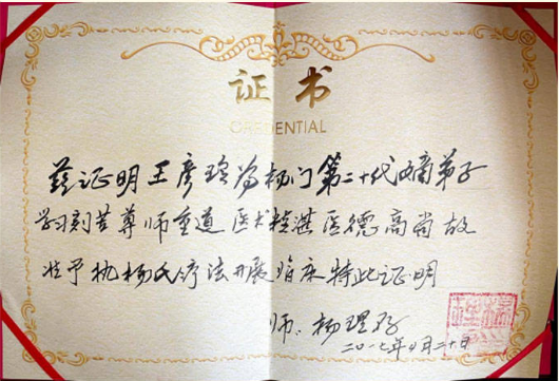 证书
CREDENTIAL
兹证明王彦玲为杨门第二十代嫡弟子
学习刻苦尊师重道医术精湛医德高尚故
准予执杨氏疗法开展临床特此证明
师：杨理存
二〇一七年四月二十日